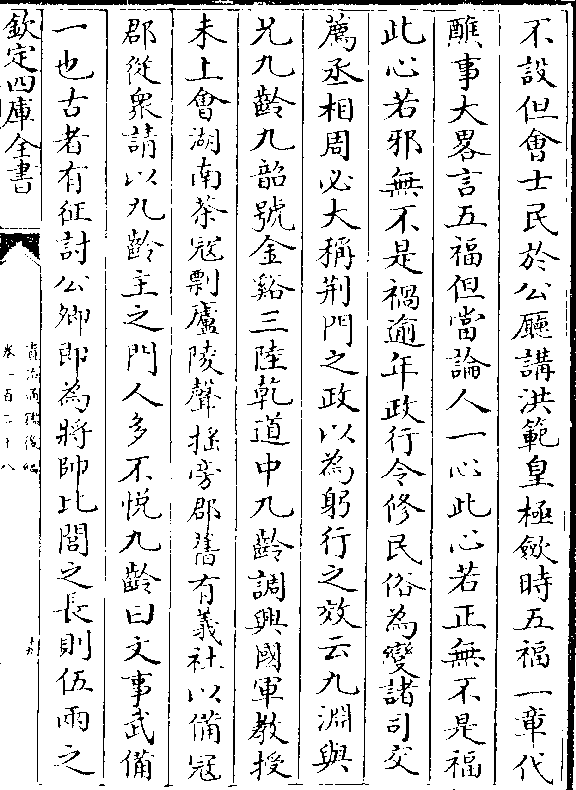 不設但會士民於公廳講洪範皇極斂時五福一章代
醮事大畧言五福但當論人一心此心若正無不是福
此心若邪無不是禍逾年政行令修民俗為變諸司交
薦丞相周必大稱荆門之政以為躬行之效云九淵與
兄九齡九韶號金谿三陸乾道中九齡調興國軍教授
未上會湖南茶冦剽廬陵聲揺旁郡舊有義社以備冦
郡從衆請以九齡主之門人多不悦九齡曰文事武備
一也古者有征討公卿即為將帥比閭之長則伍兩之
欽定四庫全書
資治通鑑後編
卷一百二十八